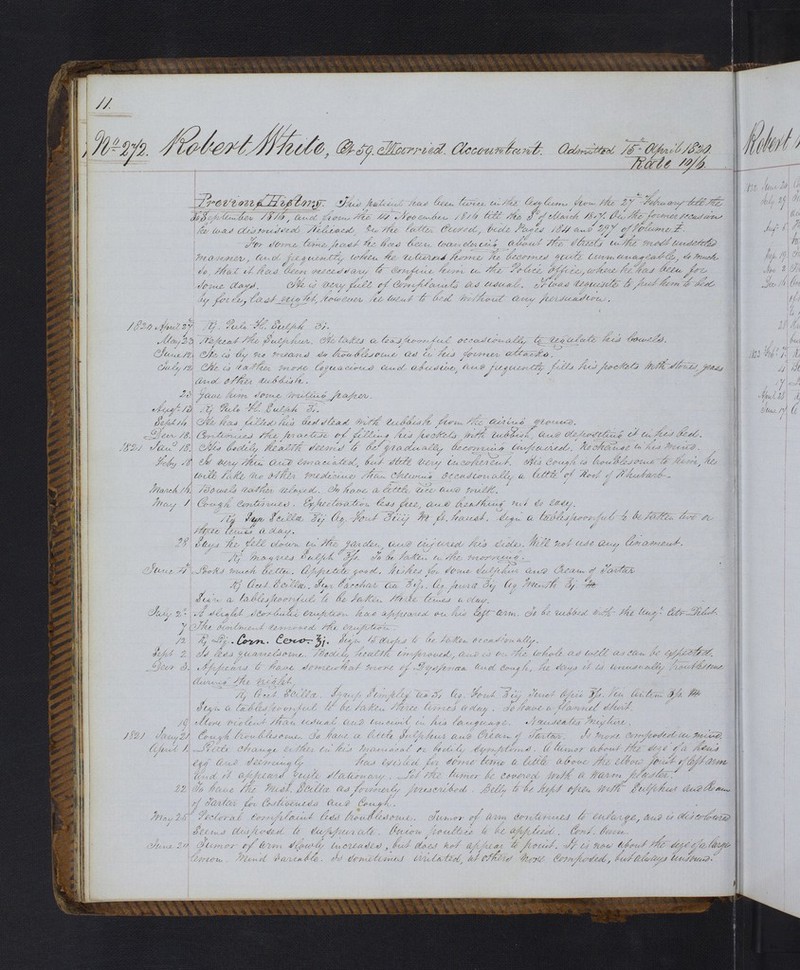 11.
No. 272. Robert White, Æt 59. Married. Accountant. Admitted 15th April 1820
Rate 10/6
Previous History. This patient has been twice in the Asylum from the 27th February till the
September 1816, and from the 14 November 1816 till the 8th of March 1817. On the former occasion
he was dismissed Relieved. In the latter Cured, vide Pages 184 and 297 of Volume I.
For some time past he has been wandering about the streets in the most unsettled
manner, and frequently when he returns home he becomes quite unmanageable, so much
so, that it has been necessary to confine him in the Police Office, where he has been for
some days. He is very full of complaints as usual. It was requisite to put him to bed
by force, last night, however he went to bed without any persuasion.
1820. April 27 Rj. Pulv. Fl. Sulph
May 23 Repeat the Sulphur. He takes a teaspoonful occasionally to regulate his bowels.
June 12 He is by no means so troublesome as in his former attacks.
July 12 He is rather more loquacious and abusive, and frequently fills his pockets with stones, grass
and other rubbish.
25 Gave him some writing paper.
Augt. 13 Rj Pulv Fl. Sulph
Sept 16 He has filled his bedstead with rubbish from the airing ground.
Decr. 18. Continues the practice of filling his pockets with rubbish, and depositing it in his bed.
1821 Jany. 18. His bodily health seems to be gradually becoming impaired. No change in his mind.
Feby. 18 Is very thin and emaciated, but still very incoherent. His cough is troublesome to him, he
will take no other medicine than chewing occasionally a little of Root of Rhubarb.
March 16 Bowels rather relaxed. To have a little rice and milk.
May 1 Cough continues. Expectoration less free, and breathing not so easy.
Scilla Aq. Font M. ft. haust. Sign a tablespoonful to be taken two or
three times a day.
28 Says he fell down in the garden, and injured his side. Will not use any linament.
Rj. Magnes Sulph To be taken in the morning.
June 4 Looks much better. Appetite good. Wishes for some sulphur and Cream of Tartar
Rj Acet Scilla. Aq pura Aq Menth
Sign a tablespoonful to be taken three times a day.
July 2. A slight scorbutic eruption has appeared on his left arm. To be rubbed with the Ung.
7 The ointment removed the eruption.
12 Rj Corn. Cerv. Sign drops to be taken occasionally.
Sept 2. Is less quarrelsome. Bodily health improved, and is on the whole as well as can be expected.
Decr 3. Appears to have somewhat more of Dyspnœa and cough, he says it is unusually troublesome
during the night.
Rj Acet Scilla. Syrup Simplex aa Aq. Font
Sign a tablespoonful to be taken three times a day. To have a flannel shirt.
19 More violent than usual and uncivil in his language. Nauseates mixture.
1821 Jany 21 Cough troublesome. To have a little Sulphur and Cream of Tartar. Is more composed in mind.
April 1. Little change either in his maniacal or bodily symptoms. A tumor about the size of a hen's
egg and seemingly has existed for some time a little above the elbow joint of left arm
and it appears quite stationary. Let the tumor be covered with a warm plaster.
22 To have the Mist. Scilla as formerly prescribed. Belly to be kept open with Sulphur and Cream
of Tartar for Costiveness and Cough.
May 25 Pectoral complaint less troublesome. Tumor of arm continues to enlarge, and is discoloured
Seems disposed to suppurate. Onion poultice to be applied. Cont.
June 24 Tumor of arm slowly increases, but does not appear to point. It is now about the size of a large
lemon. Mind variable. Is sometimes irritated, at others more composed, but always
Robert